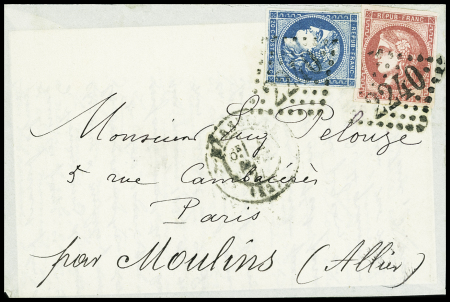 REPUB. FRANC. REPUB. FRANC.
2240
Monsieur Guy Pelouze
5 rue Cambacérès
Paris
par Moulins (Allier)